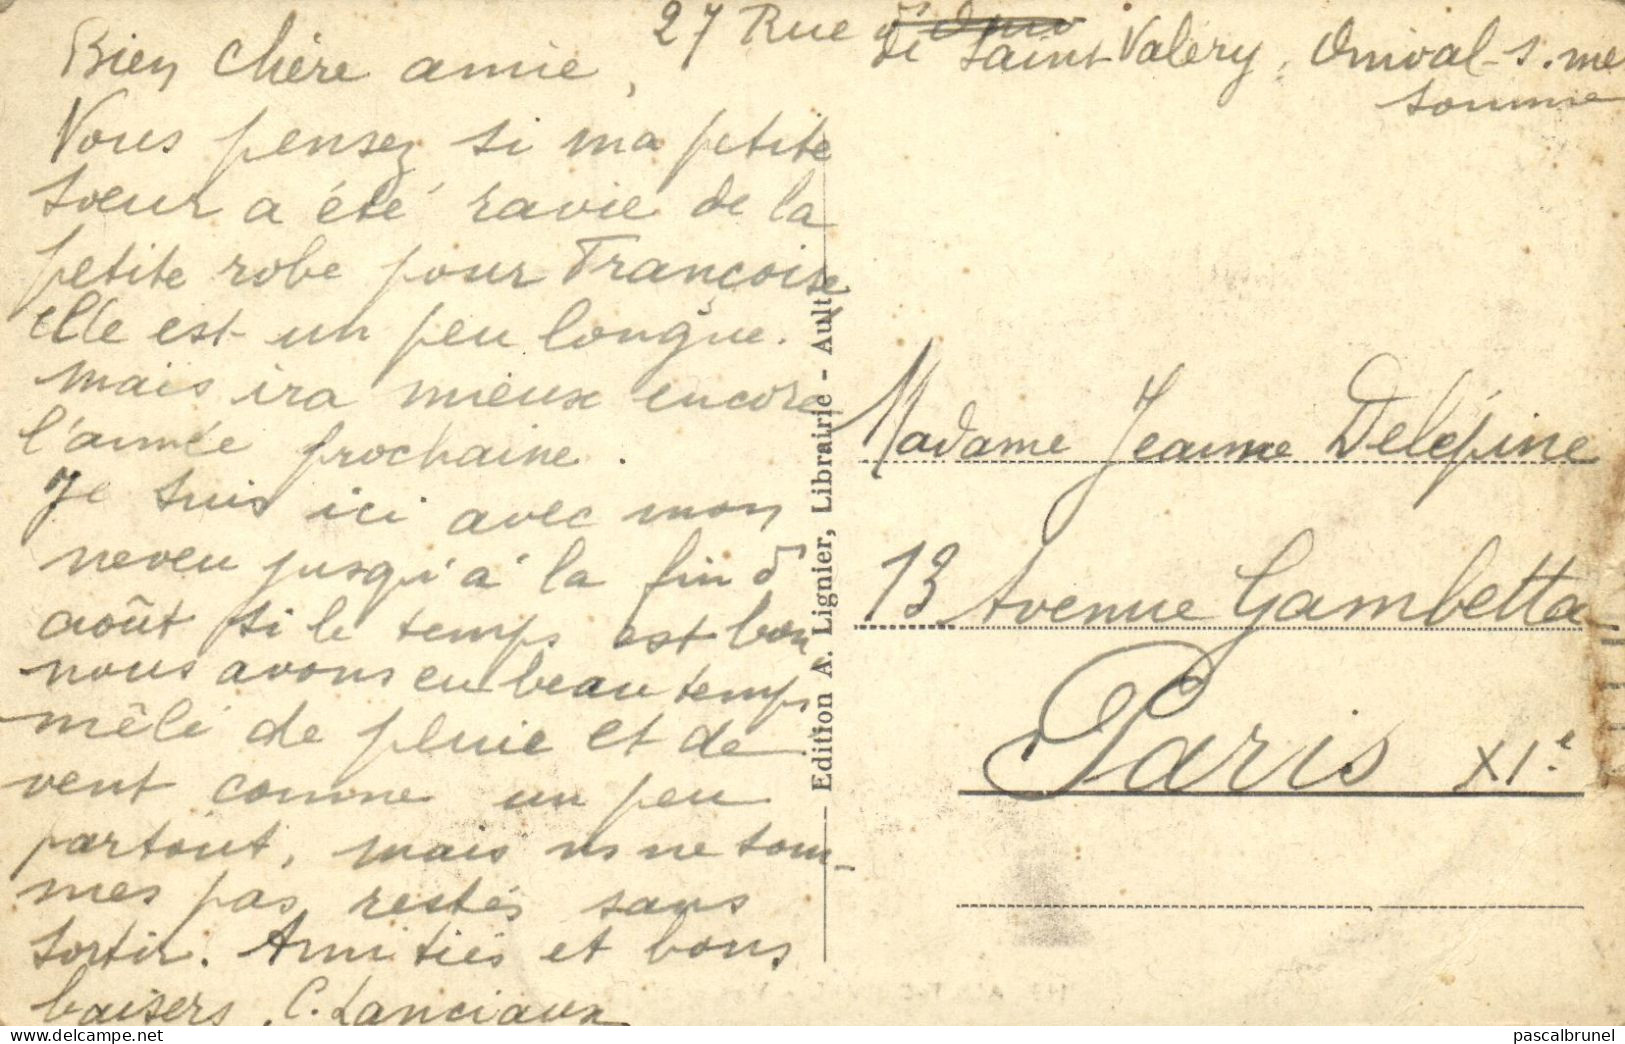 27 Rue de Saint Valery, Onival-s.me
Somme
Bien chère amie,
Vous pensez si ma petite
soeur a été ravie de la
petite robe pour Françoise
elle est un peu longue.
mais ira mieux encore
l'année prochaine.
Je suis ici avec mon
neveu jusqu'à la fin d'
août si le temps est bon
nous avons eu beau temps
mêlé de pluie et de
vent comme un peu
partout, mais ns ne som-
mes pas restés sans
sortir. Amitiés et bons
baisers, C. Lanciaux
Edition A. Lignier, Librairie - Ault
Madame Jeanne Delépine
13 Avenue Gambetta
Paris XIe.
pascalbrunel
www.delcampe.net